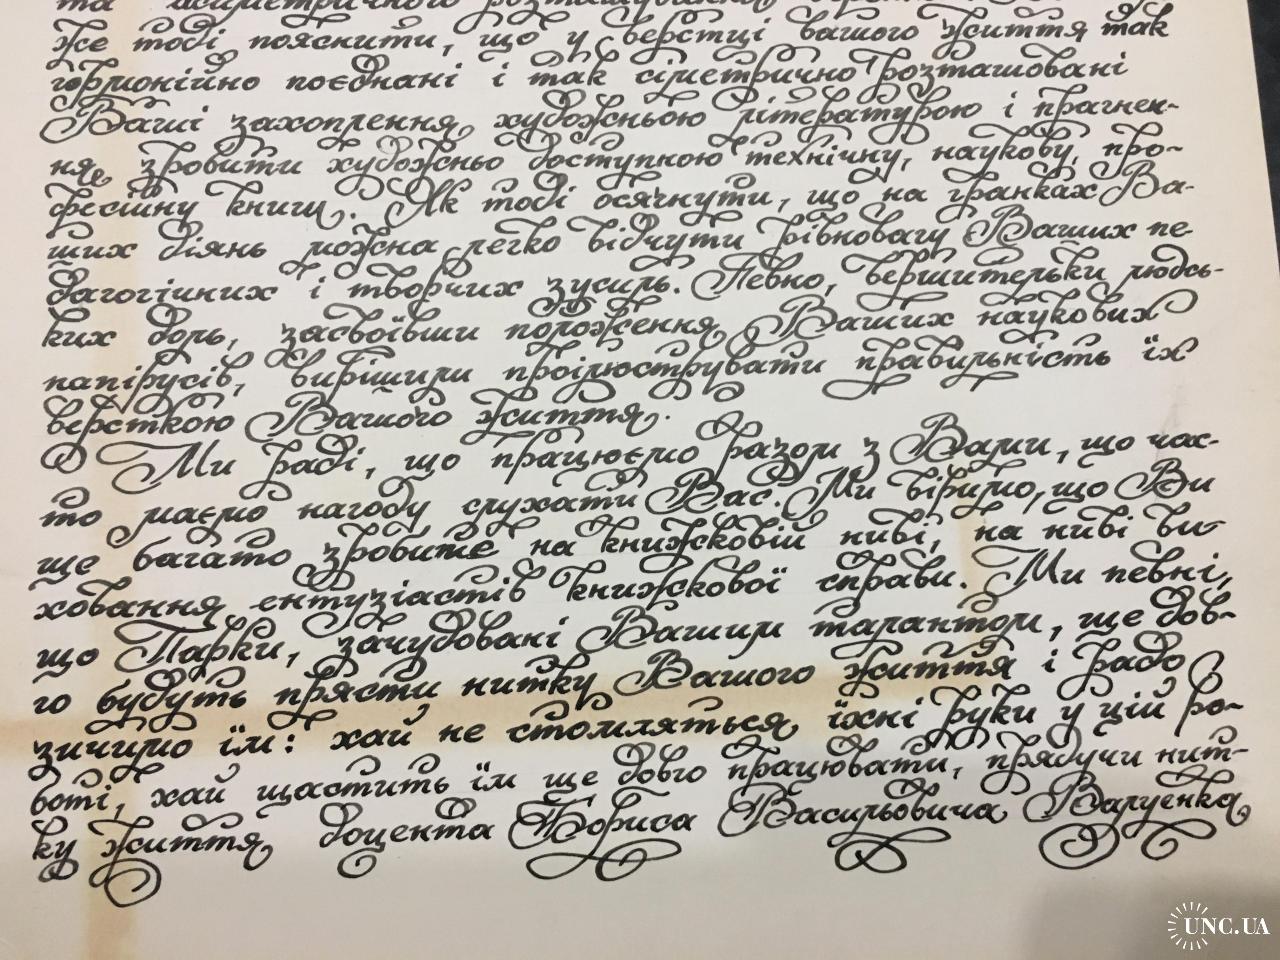 та асиметричного розташування
же тоді пояснити, що у верстці вашого життя так
гормонійно поєднані і так сіметрично розташовані
Ваші захоплення художньою літературою і прагнен-
ня зробити художньо доступною технічну, наукову, про-
фесійну книги. Як тоді осягнути, що на гранках Ва-
ших діянь можна легко відчути рівновагу Ваших пе-
дагогічних і творчих зусиль. Певно, вершительки людсь-
ких доль, засвоївши положення Ваших наукових
папірусів, вирішили проілюструвати правильність їх
версткою Вашого життя.
Ми раді, що працюємо разом з Вами, що час-
то маємо нагоду слухати Вас. Ми віримо, що Ви
ще багато зробите на книжковій ниві, на ниві ви-
ховання ентузіастів книжкової справи. Ми певні,
що Парки, зачудовані Вашим талантом, ще дов-
го будуть прясти нитку Вашого життя і радо
зичимо їм: хай не стомляться їхні руки у цій ро-
боті, хай щастить їм ще довго працювати, прядучи нит-
ку життя доцента Бориса Васильовича Валуенка
UNC.UA